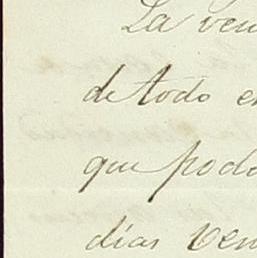 La ven
de todo e
que podo
días ven